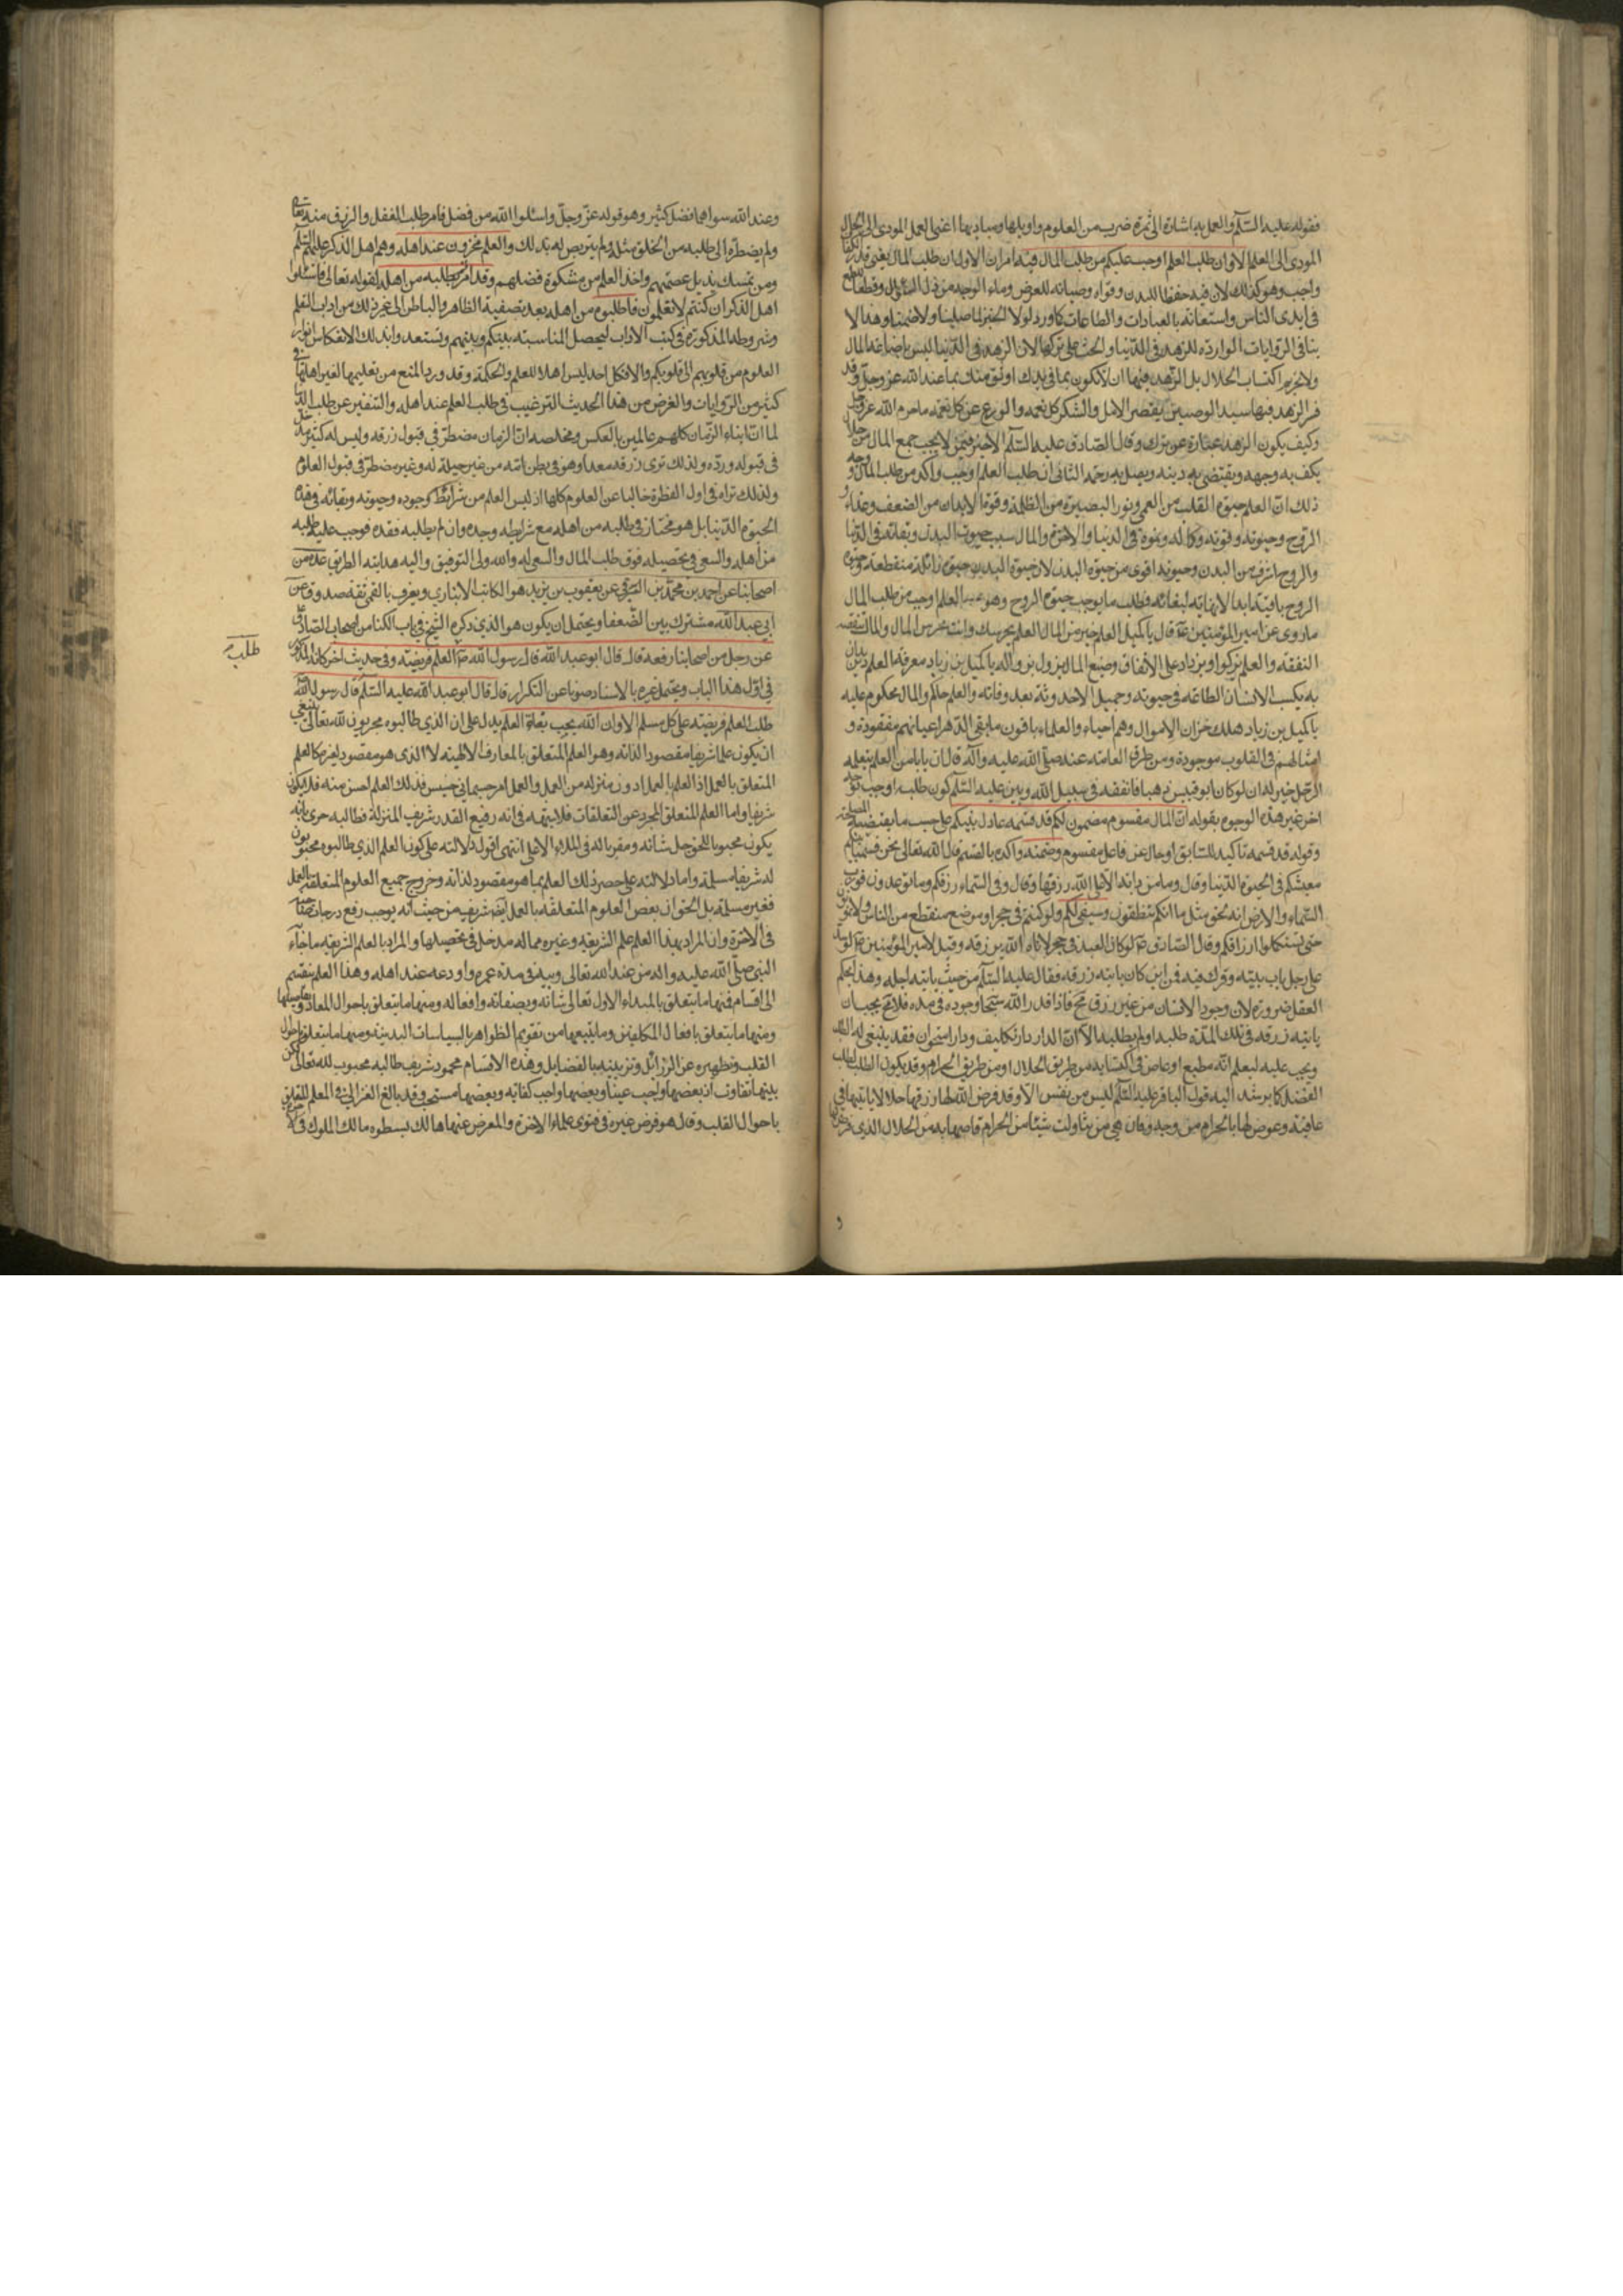 فقوله عليه السّلم والعمل به اشارة الى ثمرة ضرب من العلوم واويلها ومباديها اعنى العمل المودى الى
المودى الى العلم الا وان طلب العلم اوجب عليكم من طلب المال فيه امران الاول ان طلب المال يعنى قدر الكفا
واجب وهو كذلك لان فيه حفظا للبدن وقواه وصيانه للعرض وماء الوجه من ذل السؤال وقطعا للطمع
فى ايدى الناس واستعانه بالعبادات والطاعات كما ورد لولا الخبز لما صلينا ولا صمنا وهذا لا
ينافى الروايات الوارده للزهد فى الدنيا والحث على تركها لان الزهد فى الدنيا ليس باضاعه المال
ولا تحريم اكتساب الحلال بل الزهد فيها ان لا تكون بما فى يدك اوثق منك بما عند الله عز وجلّ وقد
فسر الزهد فيها سيد الوصيين بقصر الامل والشكر كل نعمه والورع عن كل ما حرم الله عز وجل
وكيف يكون الزهد عبارة عن ترك وقال الصادق عليه السّلم لا خير فيمن لا يحب جمع المال من حلال
يكف به وجهه ويقتضى به دينه ويصل به رحمه الثانى ان طلب العلم اوجب واكد من طلب المال وجه
ذلك انّ العلم حيوة القلب من العمى ونور البصيرة من الظلمة وقوة الابدان من الضعف وغذاء
الروح وحيوته وقوته وكماله ونموه فى الدنيا والاخرة والمال سبب حيوة البدن وبقائه فى الدنيا
والروح اشرف من البدن وحيوته اقوى من حيوة البدن لان حيوة البدن حيوة زائلة منقطعة وحيوة
الروح باقية ابدا لا نهاية لبقائه فطلب ما يوجب حيوة الروح وهو العلم اوجب من طلب المال
ما روى عن امير المؤمنين قال يا كميل العلم خير من المال العلم يحرسك وانت تحرس المال والمال تنقصه
النفقة والعلم يزكوا ويزداد على الانفاق وصنيع المال يزول بزواله يا كميل بن زياد معرفة العلم دين يدان
به يكسب الانسان الطاعه فى حيوته وجميل الاحدوثة بعد وفاته والعلم حاكم والمال محكوم عليه
يا كميل بن زياد هلك خزان الاموال وهم احياء والعلماء باقون ما بقى الدهر اعيانهم مفقودة و
امثالهم فى القلوب موجودة ومن طرق العامة عنه صلّى الله عليه وآله قال ان بابا من العلم يتعلمه
الرجل خير له ان لو كان ابو قبيس ذهبا فانفقه فى سبيل الله وبين عليه السّلم كون طلبه اوجب
اخر غير هذه الوجوه بقوله انّ المال مقسوم مضمون لكم قد قسمه عادل بينكم على حسب ما يقتضيه المصلحة
وقوله قد قسمه تاكيد للسابق او حال عن فاعل مقسوم وضمنه واكده بالقسم قال الله تعالى نحن قسمنا بينهم
معيشتهم فى الحيوة الدنيا وقال وما من دابة الا على الله رزقها وقال وفى السّماء رزقكم وما توعدون فورب
السّماء والارض انه لحق مثل ما انكم تنطقون وسيفى لكم ولو كنتم فى جحر او موضع منقطع من الناس
حتى تستكملوا ارزاقكم وقال الصادق لو كان العبد فى جحر لاتاه الله برزقه وقيل لامير المؤمنين لو سد
على رجل باب بيته وترك فيه من اين كان ياتيه رزقه فقال عليه السّلم من حيث ياتيه اجله وهذا يحكم
العقل ضرورة لان وجود الانسان من غير رزق مح فاذا قدر الله سبحا وجوده فى مدة فلا مح يجب ان
ياتيه رزقه فى تلك المدة طلبه او لم يطلبه الا انّ الدار دار تكاليف ودار امتحان فقد ينبغى له الطلب
ويجب عليه ليعلم انّه مطيع او عاص فى اكتسابه من طريق الحلال او من طريق الحرام وقد يكون الطلب لطلب
الفضل كما يرشد اليه قول الباقر عليه السّلم ليس من نفس الا وقد فرض الله لها رزقها حلالا ياتيها فى
عافية وعرض لها بالحرام من وجه وفان هى من تناولت شيئا من الحرام قاصها به من الحلال الذى فرض لها
و
وعند الله سواهما فضل كثير وهو قوله عز وجلّ واسئلوا الله من فضله فامر بطلب الفضل والرزق منه تعالى
ولم يضطره الى طلبه من الخلق مثله ولم يرخص له بذلك والعلم مخزون عند اهله وهم اهل الذكر عليهم السّلم
ومن تمسك بذيل عصمتهم واخذ العلم من مشكوة فضلهم وقد امرتم بطلبه من اهله لقوله تعالى فاسئلوا
اهل الذكر ان كنتم لا تعلمون فاطلبوه من اهله بعد تصفية الظاهر والباطن الى غير ذلك من اداب التعلم
وشروطه المذكورة فى كتب الاداب ليحصل المناسبة بينكم وبينهم وتستعد وا بذلك لانعكاس انوار
العلوم من قلوبهم الى قلوبكم والا فكل احد ليس اهلا للعلم والحكمة وقد ورد المنع من تعليمها لغير اهلها فى
كثير من الروايات والغرض من هذا الحديث الترغيب فى طلب العلم عند اهله والتنفير عن طلب الدنيا
لما انّ ابناء الزمان كلهم عالمين بالعكس ومخلصه انّ الزمان مضطر فى قبول رزقه وليس له كثير مدخل
فى قبوله ورده ولذلك ترى رزقه معدا وهو فى بطن امّه من غير حيلة له وغير مضطر فى قبول العلوم
ولذلك تراه فى اول الفطرة خاليا عن العلوم كلها اذ ليس العلم من شرائط وجوده وحيوته وبقائه فى هذه
الحيوة الدنيا بل هو مختار فى طلبه من اهله مع شرايطه وجده وان لم يطلبه فقده فوجب عليه طلبه
من اهله والسعى فى تحصيله فوق طلب المال والسعى له والله ولى التوفيق واليه هداية الطريق عدة من
اصحابنا عن احمد بن محمّد بن البرقى عن يعقوب بن يزيد هو الكاتب الانبارى ويعرف بالقمى ثقة صدوق عن
ابى عبد الله مشترك بين الضعفا ويحتمل ان يكون هو الذى ذكره الشيخ فى باب الكنا من اصحاب الصادق
عن رجل من اصحابنا رفعه قال قال ابو عبد الله قال رسول الله ص العلم فريضة وفى حديث اخر كانه المذكور
طلب
فى اوّل هذا الباب ويحتمل غيره بالاسناد صونا عن التكرار قال قال ابو عبد الله عليه السّلم قال رسول الله
طلب العلم فريضة على كل مسلم الا وان الله يحب بغاة العلم يدل على ان الذى طالبوه محبوبون لله تعالى ينبغى
ان يكون علما شريفا مقصودا لذاته وهو العلم المتعلق بالمعارف الالهية لا الذى هو مقصود لغيره كالعلم
المتعلق بالعمل اذ العلم بالعمل ادون منزله من العمل والعمل امر جسمانى خسيس فذلك العلم اخس منه فلا يكون
شريفا واما العلم المتعلق المجرد عن التعلقات فلا شبهه فى انه رفيع القدر شريف المنزلة فطالبه حرى بانه
يكون محبوبا للحق جل شانه ومقربا له فى الملاء الاعلى انتهى اقول دلالته على كون العلم الذى طالبوه محبوبون
له شريفا مسلمة واما دلالته على حصر ذلك العلم بما هو مقصود لذاته وخروج جميع العلوم المتعلقة بالعمل
فغير مسلمة بل الحق ان بعض العلوم المتعلقه بالعمل ايضا شريفه من حيث انه يوجب رفع درجات صاحبها
فى الاخرة وان المراد بهذا العلم علم الشريعه وغيره مما له مدخل فى تحصيلها والمراد بالعلم الشريعه ما جاء
النبى صلّى الله عليه واله من عند الله تعالى وبينه فى مدة عمره واودعه عند اهله وهذا العلم ينقسم
الى اقسام فمنها ما يتعلق بالمبداء الاول تعالى شانه وبصفاته وافعاله ومنها ما يتعلق باحوال المعاد وتفاصيلها
ومنها ما يتعلق بافعال المكلفين وما يتبعها من تقويم الظواهر بالسياسات البدنية ومنها ما يتعلق باحوال
القلب وتطهيره عن الرزائل وتزيينه بالفضايل وهذه الاقسام محمود شريف طالبه محبوب لله تعالى لكن
بينها تفاوت اذ بعضها واجب عينا وبعضها واجب كفاية وبعضها مستحب وقد بالغ الغزالى فى العلم المتعلق
باحوال القلب وقال هو فرض عين فى فتوى علماء الاخرة والمعرض عنها هالك بسطوه مالك الملوك فى